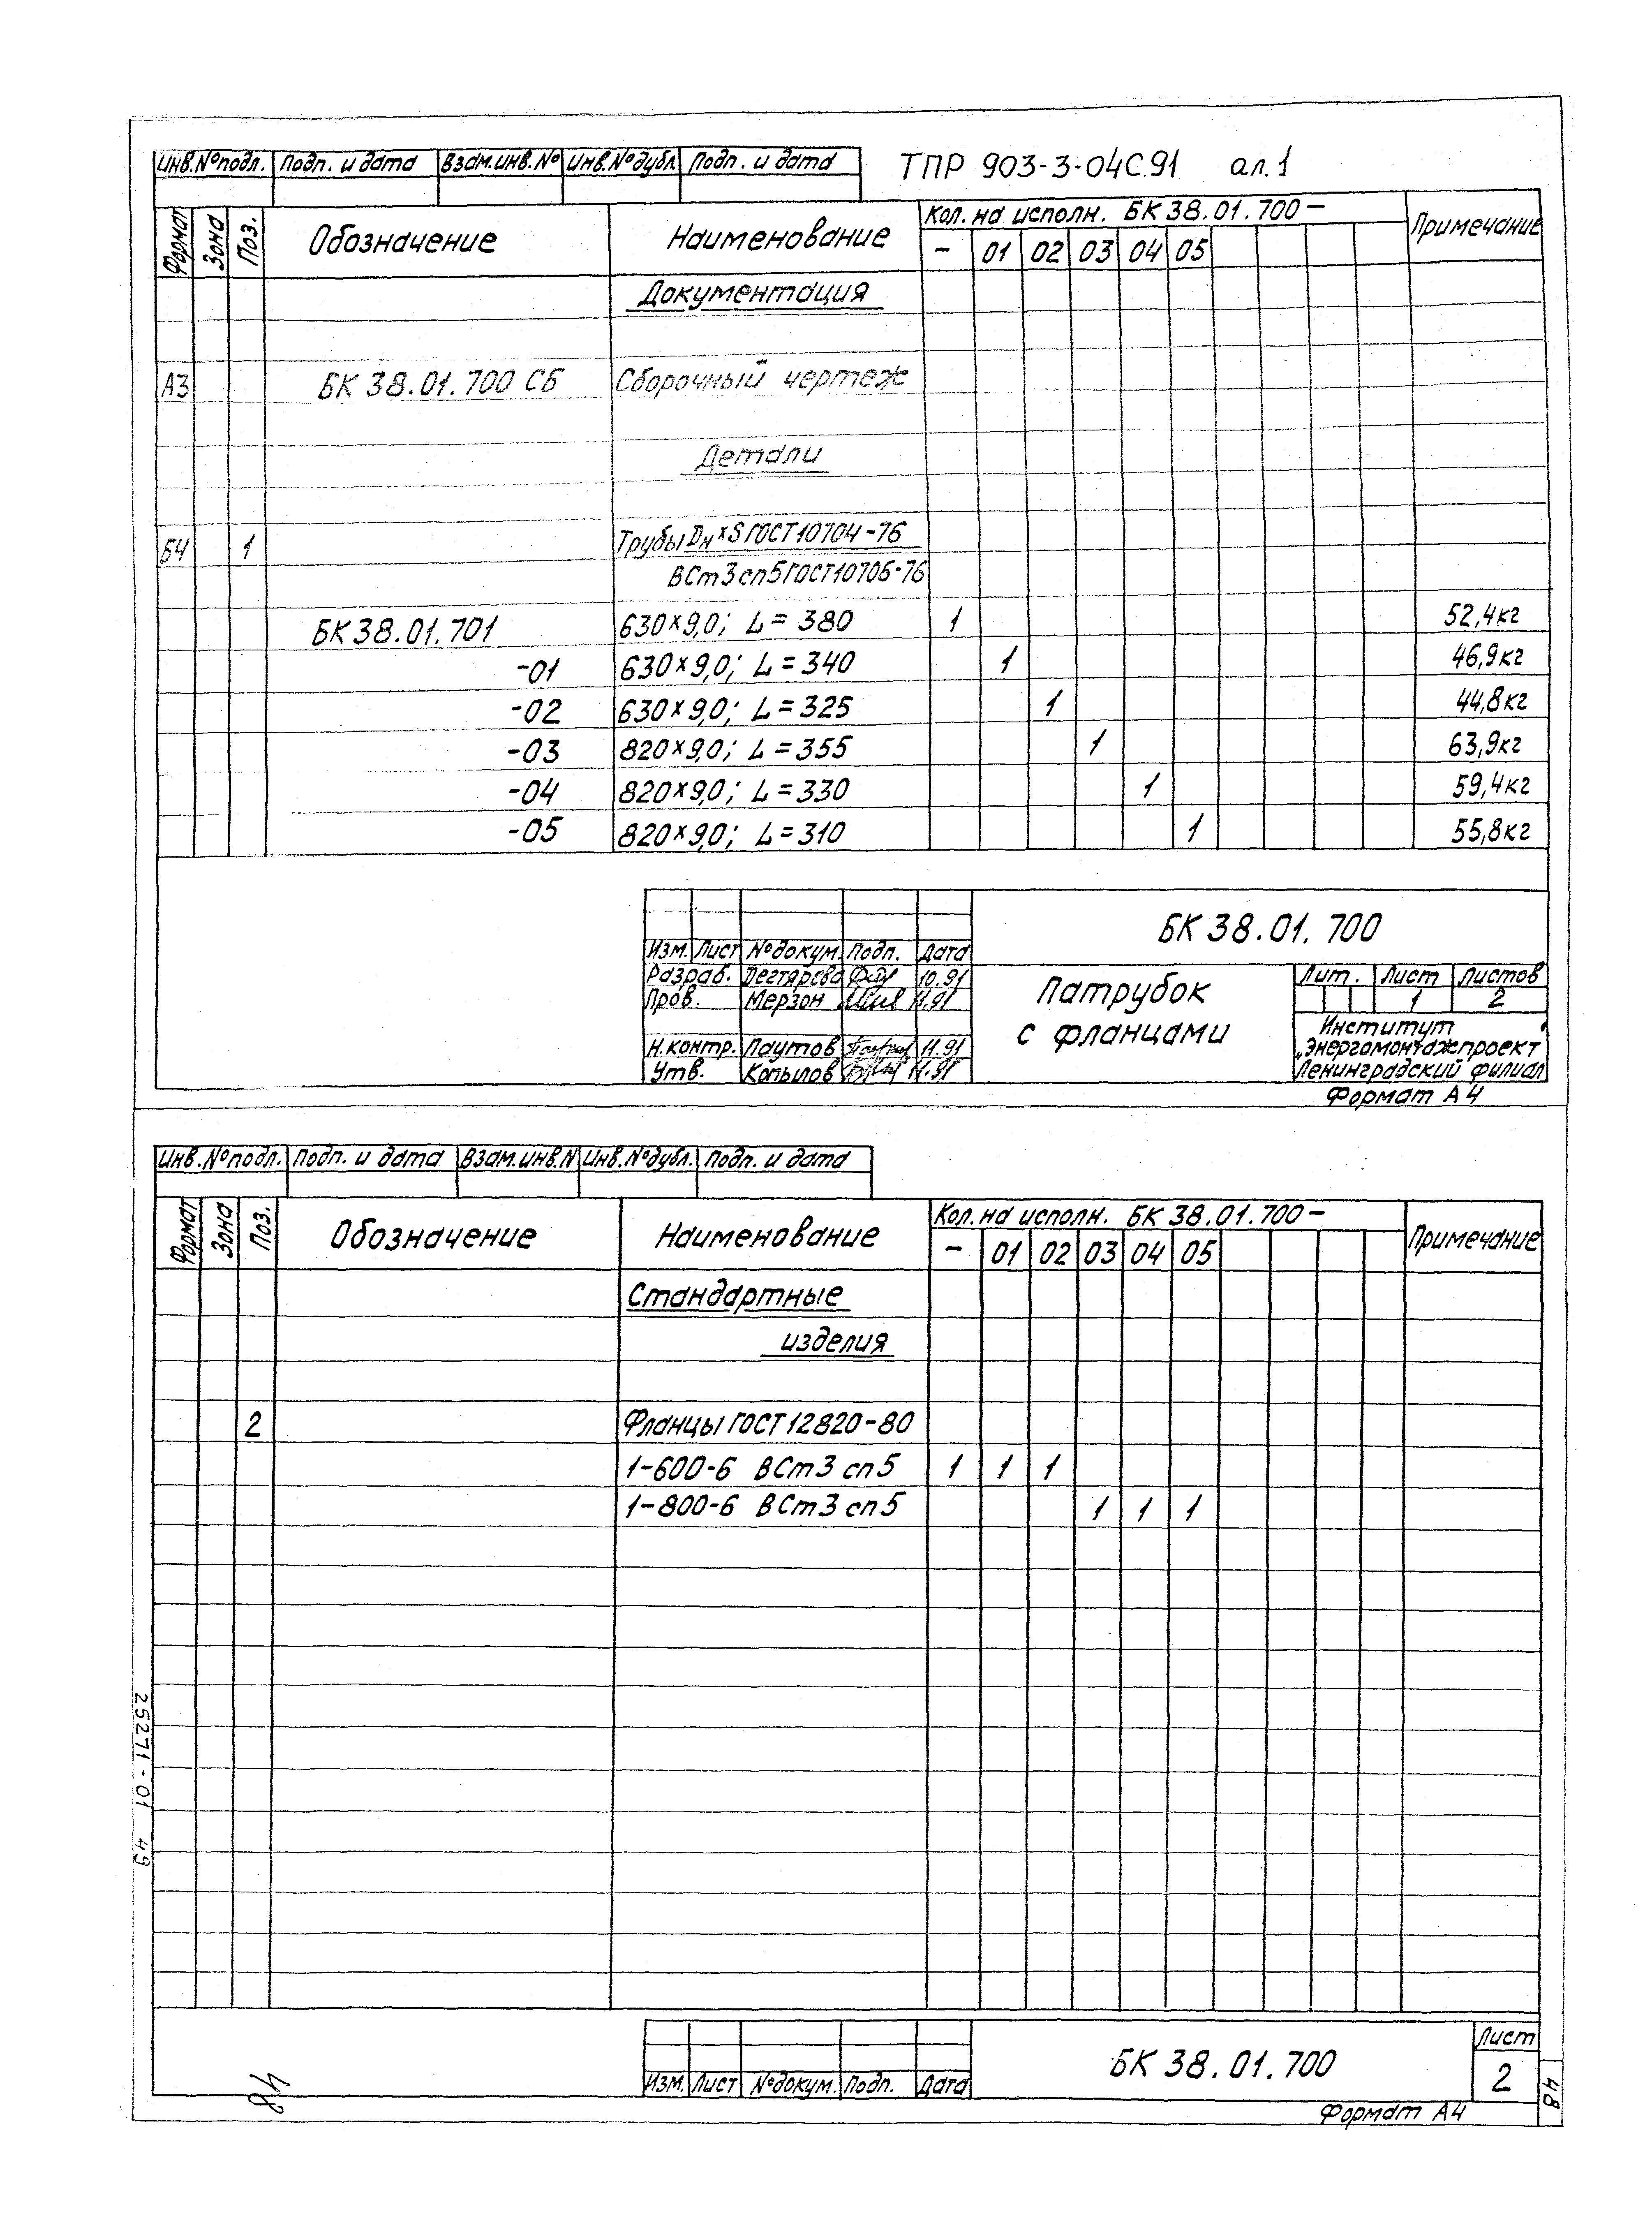 ТПР 903-3-04С.91 ал.1
Инв.№подл. Подп. и дата Взам.инв.№ Инв.№дубл. Подп. и дата
Формат Зона Поз. Обозначение Наименование Кол. на исполн. БК 38.01.700 – Примечание
– 01 02 03 04 05
Документация
А3 БК 38.01.700 СБ Сборочный чертеж
Детали
Б4 1 Трубы Dн×S ГОСТ 10704-76
ВСт3сп5 ГОСТ 10706-76
БК 38.01.701 630×9,0; L=380 1 52,4кг
-01 630×9,0; L=340 1 46,9кг
-02 630×9,0; L=325 1 44,8кг
-03 820×9,0; L=355 1 63,9кг
-04 820×9,0; L=330 1 59,4кг
-05 820×9,0; L=310 1 55,8кг
БК 38.01.700
Изм. Лист №докум. Подп. Дата
Разраб. Дегтярева 10.91
Пров. Мерзон 11.91
Н.контр. Паутов 11.91
Утв. Копылов 11.91
Патрубок
с фланцами
Лит. Лист Листов
1 2
Институт
„Энергомонтажпроект
Ленинградский филиал
Формат А4
Инв.№подл. Подп. и дата Взам.инв.№ Инв.№дубл. Подп. и дата
Формат Зона Поз. Обозначение Наименование Кол. на исполн. БК 38.01.700 – Примечание
– 01 02 03 04 05
Стандартные
изделия
2 Фланцы ГОСТ 12820-80
1-600-6 ВСт3сп5 1 1 1
1-800-6 ВСт3сп5 1 1 1
25271-01 49
Изм. Лист №докум. Подп. Дата
БК 38.01.700
Лист
2
Формат А4
48
48